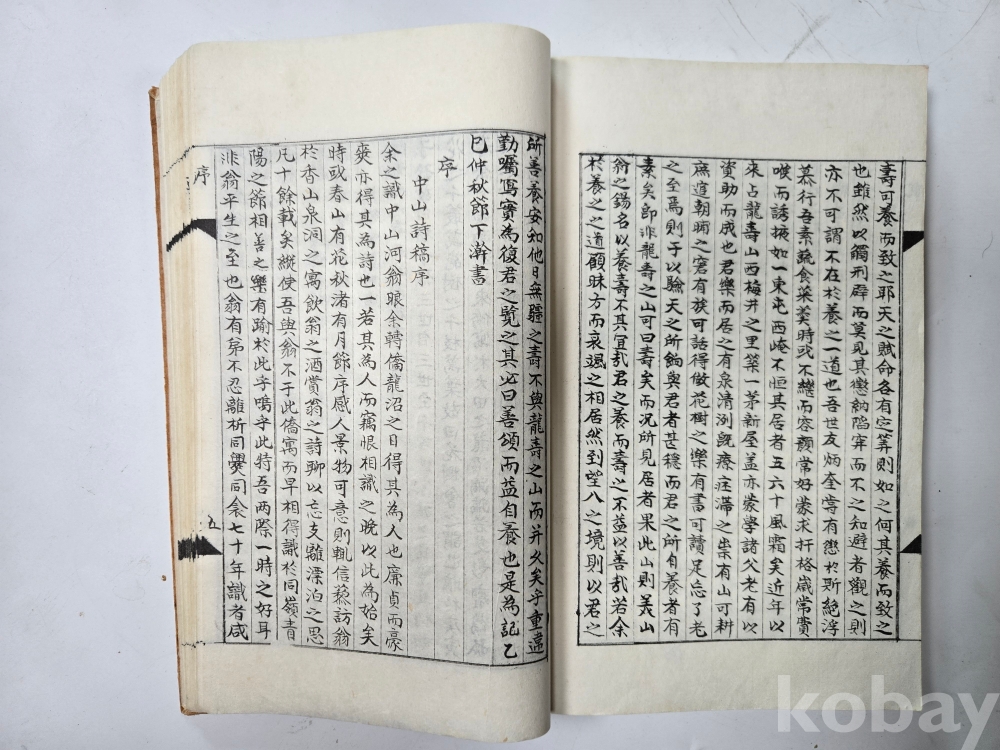 壽可養而致之耶天之賦命各有定筭則如之何其養而致之
也雖然以觸刑辟而莫見其戀納陷穽而不之知避者觀之則
亦不可謂不在於養之一道也吾世友炳奎甞有慦於斯絶浮
慕行吾素蔬食菜羹時或不繼而容顏常好蒙求扞格歲常賞
喉而誘掖如一東屯西崦不恒其居者五六十風霜矣近年以
來占龍壽山西梅井之里築一茅新屋盖亦蒙學諸父老有以
資助而成也君樂而居之有泉清冽旣療疰滯之祟有山可耕
庶逭朝晡之窘有族可話得倣花樹之樂有書可讀足忘了老
之至焉則于以驗天之所餉與君者甚穩而君之所自養者有
素矣郎非龍壽之山可曰壽矣而况所見居者果此山則義山
翁之錫名以養壽不其宜㢤君之養而壽之不益以善㢤若余
於養之之道顧昧方而衰颯之相居然到望八之境則以君之
所善養安知他日無疆之壽不與龍壽之山而并久矣乎重違
勤囑寫實為復君之覽之其必曰善頌而益自養也是為記乙
巳仲秋節下澣書
序
中山詩稿序
余之識中山河翁㫰余轉僑龍沼之日得其為人也廉貞而豪
爽亦得其為詩也一若其為人而竊恨相識之晚以此為始矣
時或春山有花秋渚有月節序感人景物可意則輒信藜訪翁
於香山泉洞之寓飮翁之酒賞翁之詩聊以忘支離漂泊之思
凡十餘載矣縱使吾與翁不于此僑寓而早相得識於同嶺青
陽之節相善之樂有踰於此乎嗚乎此特吾兩際一時之好耳
非翁平生之至也翁有弟不忍離析同爨同衾七十年識者咸
序
五
kobay